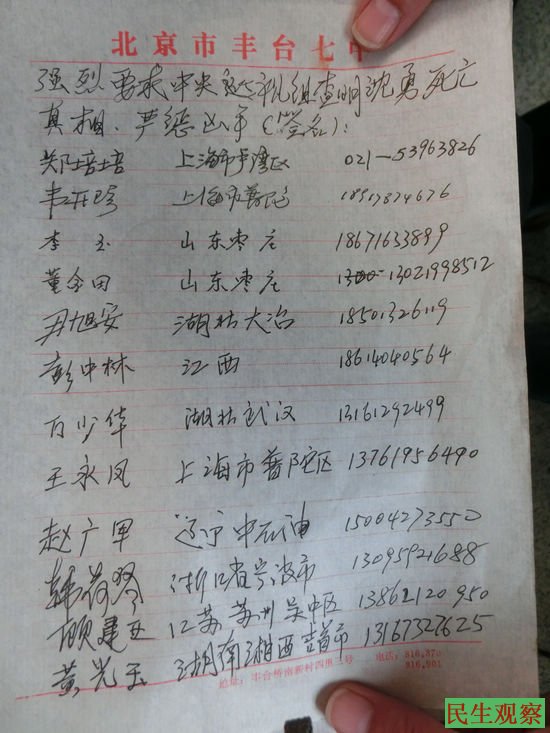 北京市丰台七中
强烈要求中央 组查明沈勇死亡
真相、严惩凶手(签名):
郑培培 上海市卢湾区 021-53963826
韦开珍 上海市普陀 18917874676
李玉 山东枣庄 18671633899
董金田 山东枣庄 13021998512
尹旭安 湖北大冶 18501326119
彭中林 江西 18614040564
万少华 湖北武汉 13161292499
王永凤 上海市普陀区 13761956490
赵广军 辽宁中石油 15004273550
韩菊琴 浙江省宁波市 13095921688
顾建 江苏苏州吴中区 13862120950
黄光玉 湖南湘西吉首市 13167327625
地址:丰台桥南新村四里二号 电话:816.370
816.901
民生观察